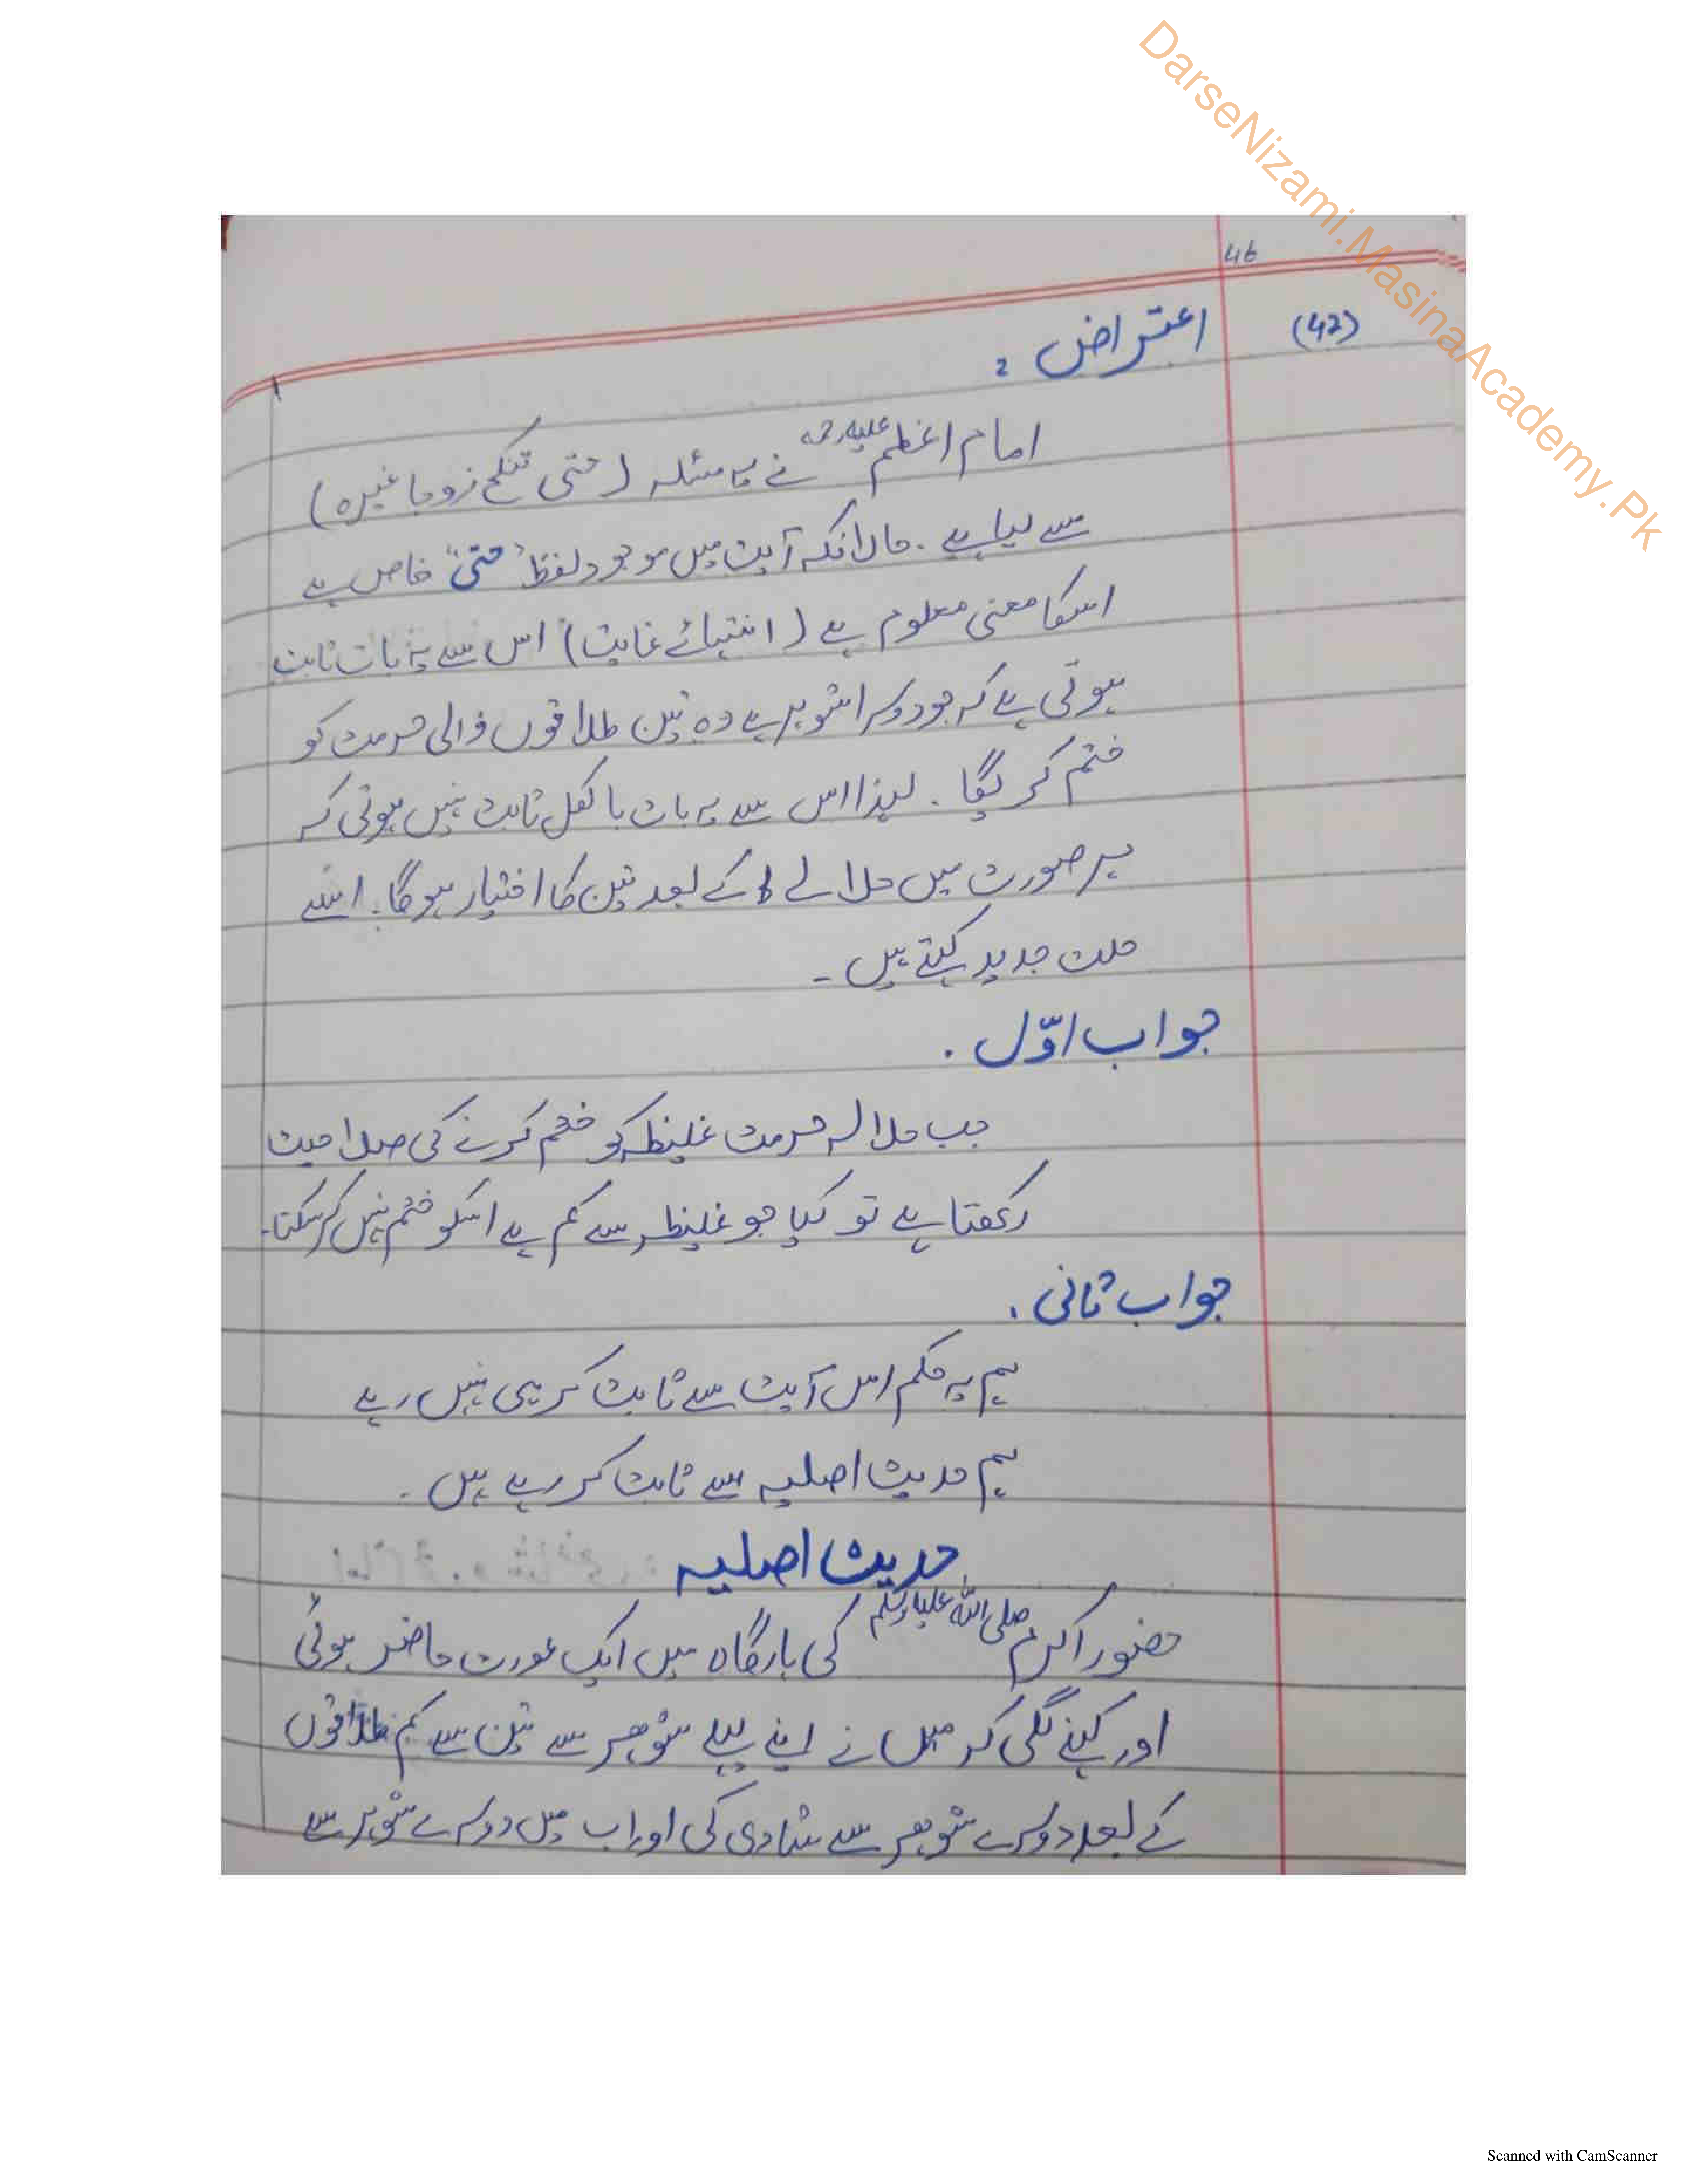 DarseNizami.MasinaAcademy.Pk
46
(42) اعتراض :
امام اعظم علیہ رحمہ نے یہ مسئلہ (حتی تنکح زوجا غیرہ)
سے لیا ہے ۔ حالانکہ آیت میں موجود لفظ "حتی" خاص ہے
اسکا معنی معلوم ہے (انتہائے غایت) اس سے یہ بات ثابت
ہوتی ہے کہ جو دوسرا شوہر ہے وہ تین طلاقوں والی حرمت کو
ختم کریگا ۔ لہذا اس سے یہ بات بالکل ثابت نہیں ہوتی کہ
ہر صورت میں حلالے کے بعد تین کا اختیار ہوگا۔ اسے
حلت جدید کہتے ہیں ۔
جواب اوّل .
جب حلالہ حرمت غلیظہ کو ختم کرنے کی صلاحیت
رکھتا ہے تو کیا جو غلیظہ سے کم ہے اسکو ختم نہیں کرسکتا۔
جواب ثانی .
ہم یہ حکم اس آیت سے ثابت کر ہی نہیں رہے
ہم حدیث اصلیہ سے ثابت کر رہے ہیں ۔
حدیث اصلیہ
حضور اکرم صلی اللہ علیہ وسلم کی بارگاہ میں ایک عورت حاضر ہوئی
اور کہنے لگی کہ میں نے اپنے پہلے شوھر سے تین سے کم طلاقوں
کے بعد دوسرے شوہر سے شادی کی اور اب میں دوسرے شوہر سے
Scanned with CamScanner